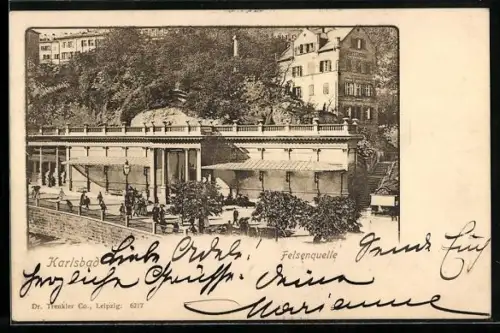 Karlsbad
Felsenquelle
Liebe Adele! Sende Euch
herzliche Grüsse. Deine
Marianne
Dr. Trenkler Co., Leipzig. 6217